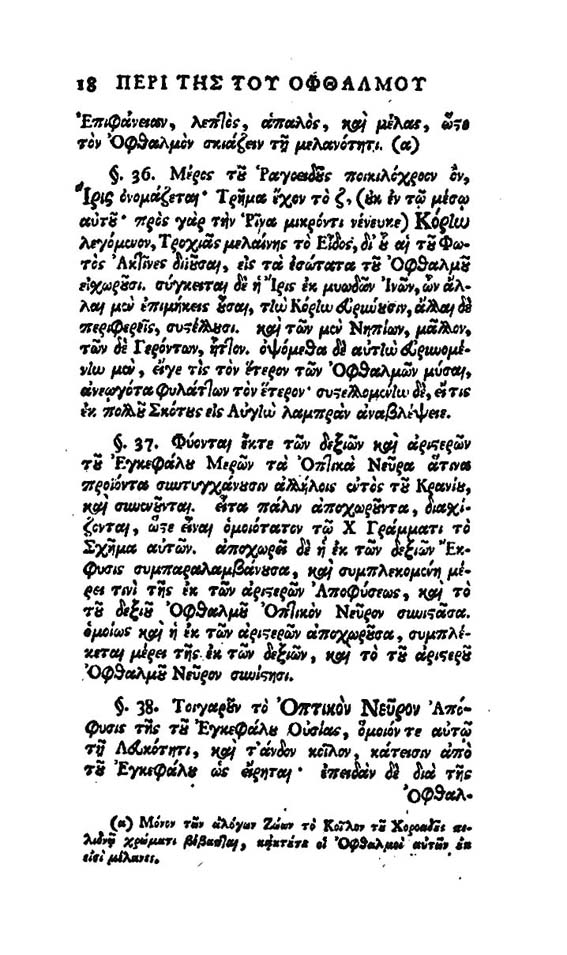 18 ΠΕΡΙ ΤΗΣ ΤΟΥ ΟΦΘΑΛΜΟΥ
Ἐπιφάνειαν, λεπτὸς, ἁπαλὸς, καὶ μέλας, ὥςε
τὸν Ὀφθαλμὸν σκιάζειν τῇ μελανότητι. (α)
§. 36. Μέρος τοῦ Ῥαγοειδοῦς ποικιλόχροον ὂν,
Ἶρις ὀνομάζεται· Τρῆμα ἔχον τὸ ζ, (οὐκ ἐν τῷ μέσῳ
αὐτοῦ· πρὸς γὰρ τὴν Ῥῖνα μικρόντι νένευκε) Κόρἰω
λεγόμενον, Τροχιᾶς μελαίνης τὸ Εἶδος, δι' οὗ αἱ τοῦ Φω-
τὸς Ἀκτῖνες διϊοῦσαι, εἰς τὰ ἐσώτατα τοῦ Ὀφθαλμοῦ
εἰχωροῦσι. σύγκειται δὲ ἡ Ἶρις ἐκ μυωδῶν Ἰνῶν, ὧν ἄλ-
λαι μὲν ἐπιμήκεις οὖσαι, τὴν Κόρην εὐρύνουσιν, ἄλλαι δὲ
περιφερεῖς, συςέλλουσι. καὶ τῶν μὲν Νηπίων, μᾶλλον,
τῶν δὲ Γερόντων, ἧττον. ὀψόμεθα δὲ αὐτὴν εὐρυνομέ-
νην μὲν, εἴγε τὶς τὸν ἕτερον τῶν Ὀφθαλμῶν μύσας,
ἀνεῳγότα φυλάττων τὸν ἕτερον· συςελλομένην δὲ, εἴ τις
ἐκ πολλοῦ Σκότους εἰς Αὐγὴν λαμπρὰν ἀναβλέψειε.
§. 37. Φύονται ἔκτε τῶν δεξιῶν καὶ ἀριςερῶν
τοῦ Ἐγκεφάλου Μερῶν τὰ Ὀπτικὰ Νεῦρα ἅτινα
προϊόντα συντυγχάνουσιν ἀλλήλοις ἐντὸς τοῦ Κρανίου,
καὶ συνενοῦνται. εἶτα πάλιν ἀποχωροῦντα, διαχί-
ζονται, ὥςε εἶναι ὁμοιότατον τῷ Χ Γράμματι τὸ
Σχῆμα αὐτῶν. ἀποχωρεῖ δὲ ἡ ἐκ τῶν δεξιῶν Ἔκ-
φυσις συμπαραλαμβάνουσα, καὶ συμπλεκομένη μέ-
ρει τινὶ τῆς ἐκ τῶν ἀριςερῶν Ἀποφύσεως, καὶ τὸ
τοῦ δεξιοῦ Ὀφθαλμοῦ Ὀπτικὸν Νεῦρον συνιςᾶσα.
ὁμοίως καὶ ἡ ἐκ τῶν ἀριςερῶν ἀποχωροῦσα, συμπλέ-
κεται μέρει τῆς ἐκ τῶν δεξιῶν, καὶ τὸ τοῦ ἀριςεροῦ
Ὀφθαλμοῦ Νεῦρον συνίςησι.
§. 38. Τοιγαροῦν τὸ Ὀπτικὸν Νεῦρον Ἀπό-
φυσις τῆς τοῦ Ἐγκεφάλου Οὐσίας, ὅμοιόν τε αὐτῷ
τῇ Λευκότητι, καὶ τ' ἄνδον κοῖλον, κάτεισιν ἀπὸ
τοῦ Ἐγκεφάλου ὡς εἴρηται· ἐπειδὰν δὲ διὰ τῆς
Ὀφθαλ-
(α) Μόνον τῶν ἀλόγων Ζώων τὸ Κοῖλον τοῦ Χοροειδοῦς πε-
λιδνῷ χρώματι βέβαπται, οἱ Ὀφθαλμοὶ αὐτῶν ἐκ
εἰσὶ μέλανες.